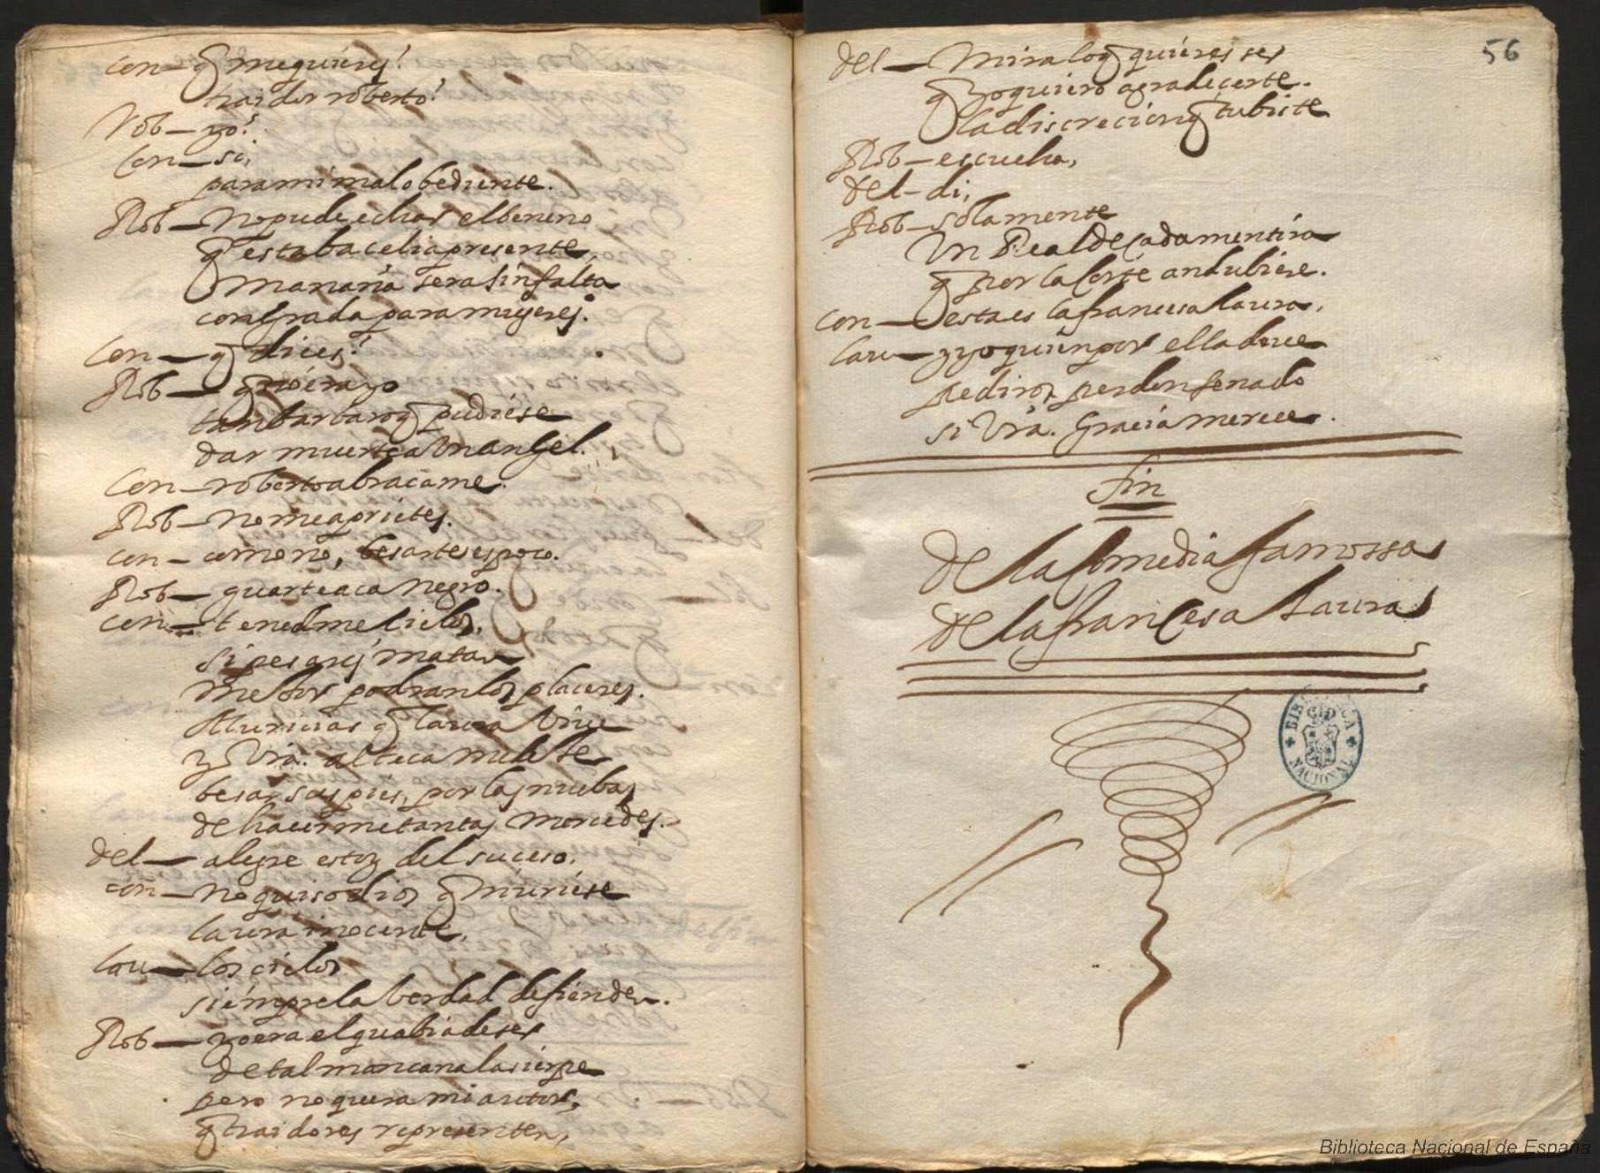 Con— q me quieres?
traidor roberto?
Rob— yo?
Con— si,
para mi mal obediente.
Rob— no pude echar el beneno
q estaba celia presente,
mañana sera sin falta
con q rada para mugeres.
Con— q dices?
Rob— q no era yo
tan barbaro q pudiese
dar muerte a Un angel.
Con— roberto abraçame.
Rob— no me aprietes.
Con— como no, besarte es poco.
Rob— guarte aca negro.
Con— tenedme cielos,
si pesares matan
mejor podran los placeres.
Albricias q laura Vive
y Vra. alteça
besar sus pies, por las nuebas
de hacerme tantas mercedes.
del— alegre estoy del suceso.
Con— no quiso dios q muriese
laura inocente,
lau— los cielos
siempre la berdad defienden.
Rob— yo era el q abia de ser
de tal mançana la sierpe
pero no quiera mi autor,
q traidores representen,
56
del— Mira lo q quieres ser
q yo quiero agradecerte.
la discrecion q tubiste
Rob— escucha,
del— di,
Rob— solamente
Un Real de cada mentira
q por la Corte andubiere.
Con— esta es la francesa laura,
lau— y yo quien por ella deve
pediros perdon senado
si Vra. Gracia merece.
fin
De la Comedia famossa
De la francesa Laura
BIBLIOTECA NACIONAL
Biblioteca Nacional de España